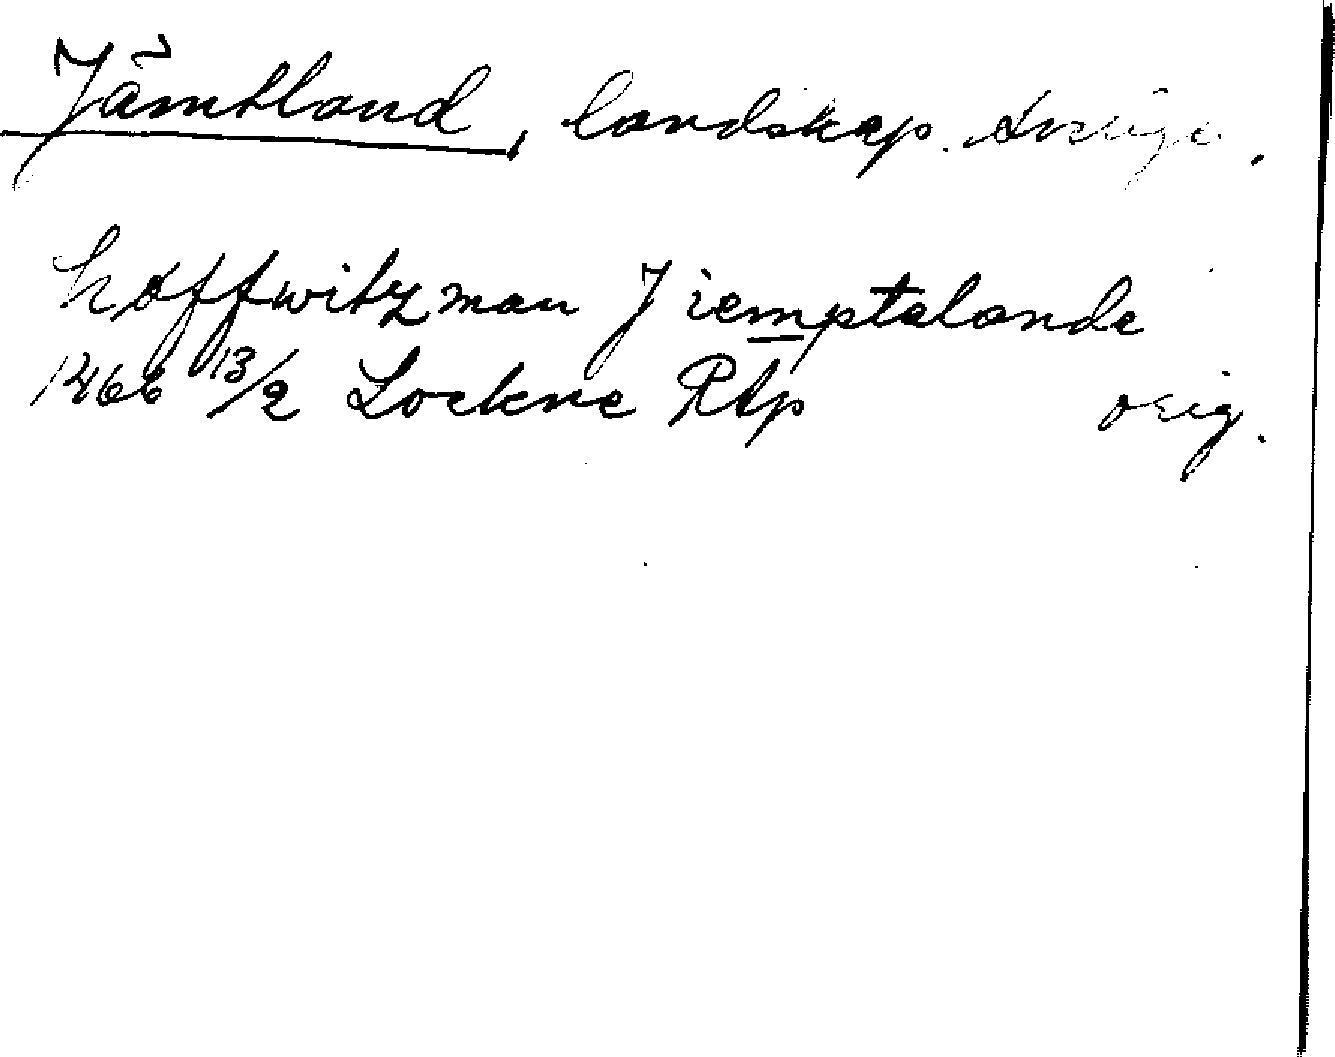 Jämtland, landskap. Sverige.
høffwitzman J iemptalande
1466 13/2 Lockne RAp orig.